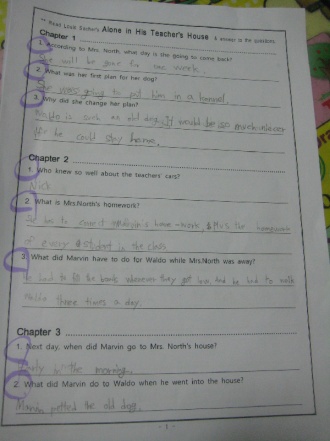 ** Read Louis Sachar's Alone in His Teacher's House & answer to the questions
Chapter 1
1. According to Mrs. North, what day is she going to come back?
She will be gone for one week.
2. What was her first plan for her dog?
She was going to put him in a kennel.
3. Why did she change her plan?
Waldo is such an old dog. It would be so much nicer
if he could stay home.
Chapter 2
1. Who knew so well about the teachers' cars?
Nick
2. What is Mrs.North's homework?
has to correct Marvin's home-work, plus the homework
of every student in the class
3. What did Marvin have to do for Waldo while Mrs.North was away?
He had to fill the bowls whenever they get low. And he had to walk
Waldo three times a day.
Chapter 3
1. Next day, when did Marvin go to Mrs. North's house?
Early in the morning.
2. What did Marvin do to Waldo when he went into the house?
Marvin petted the old dog.
- 1 -